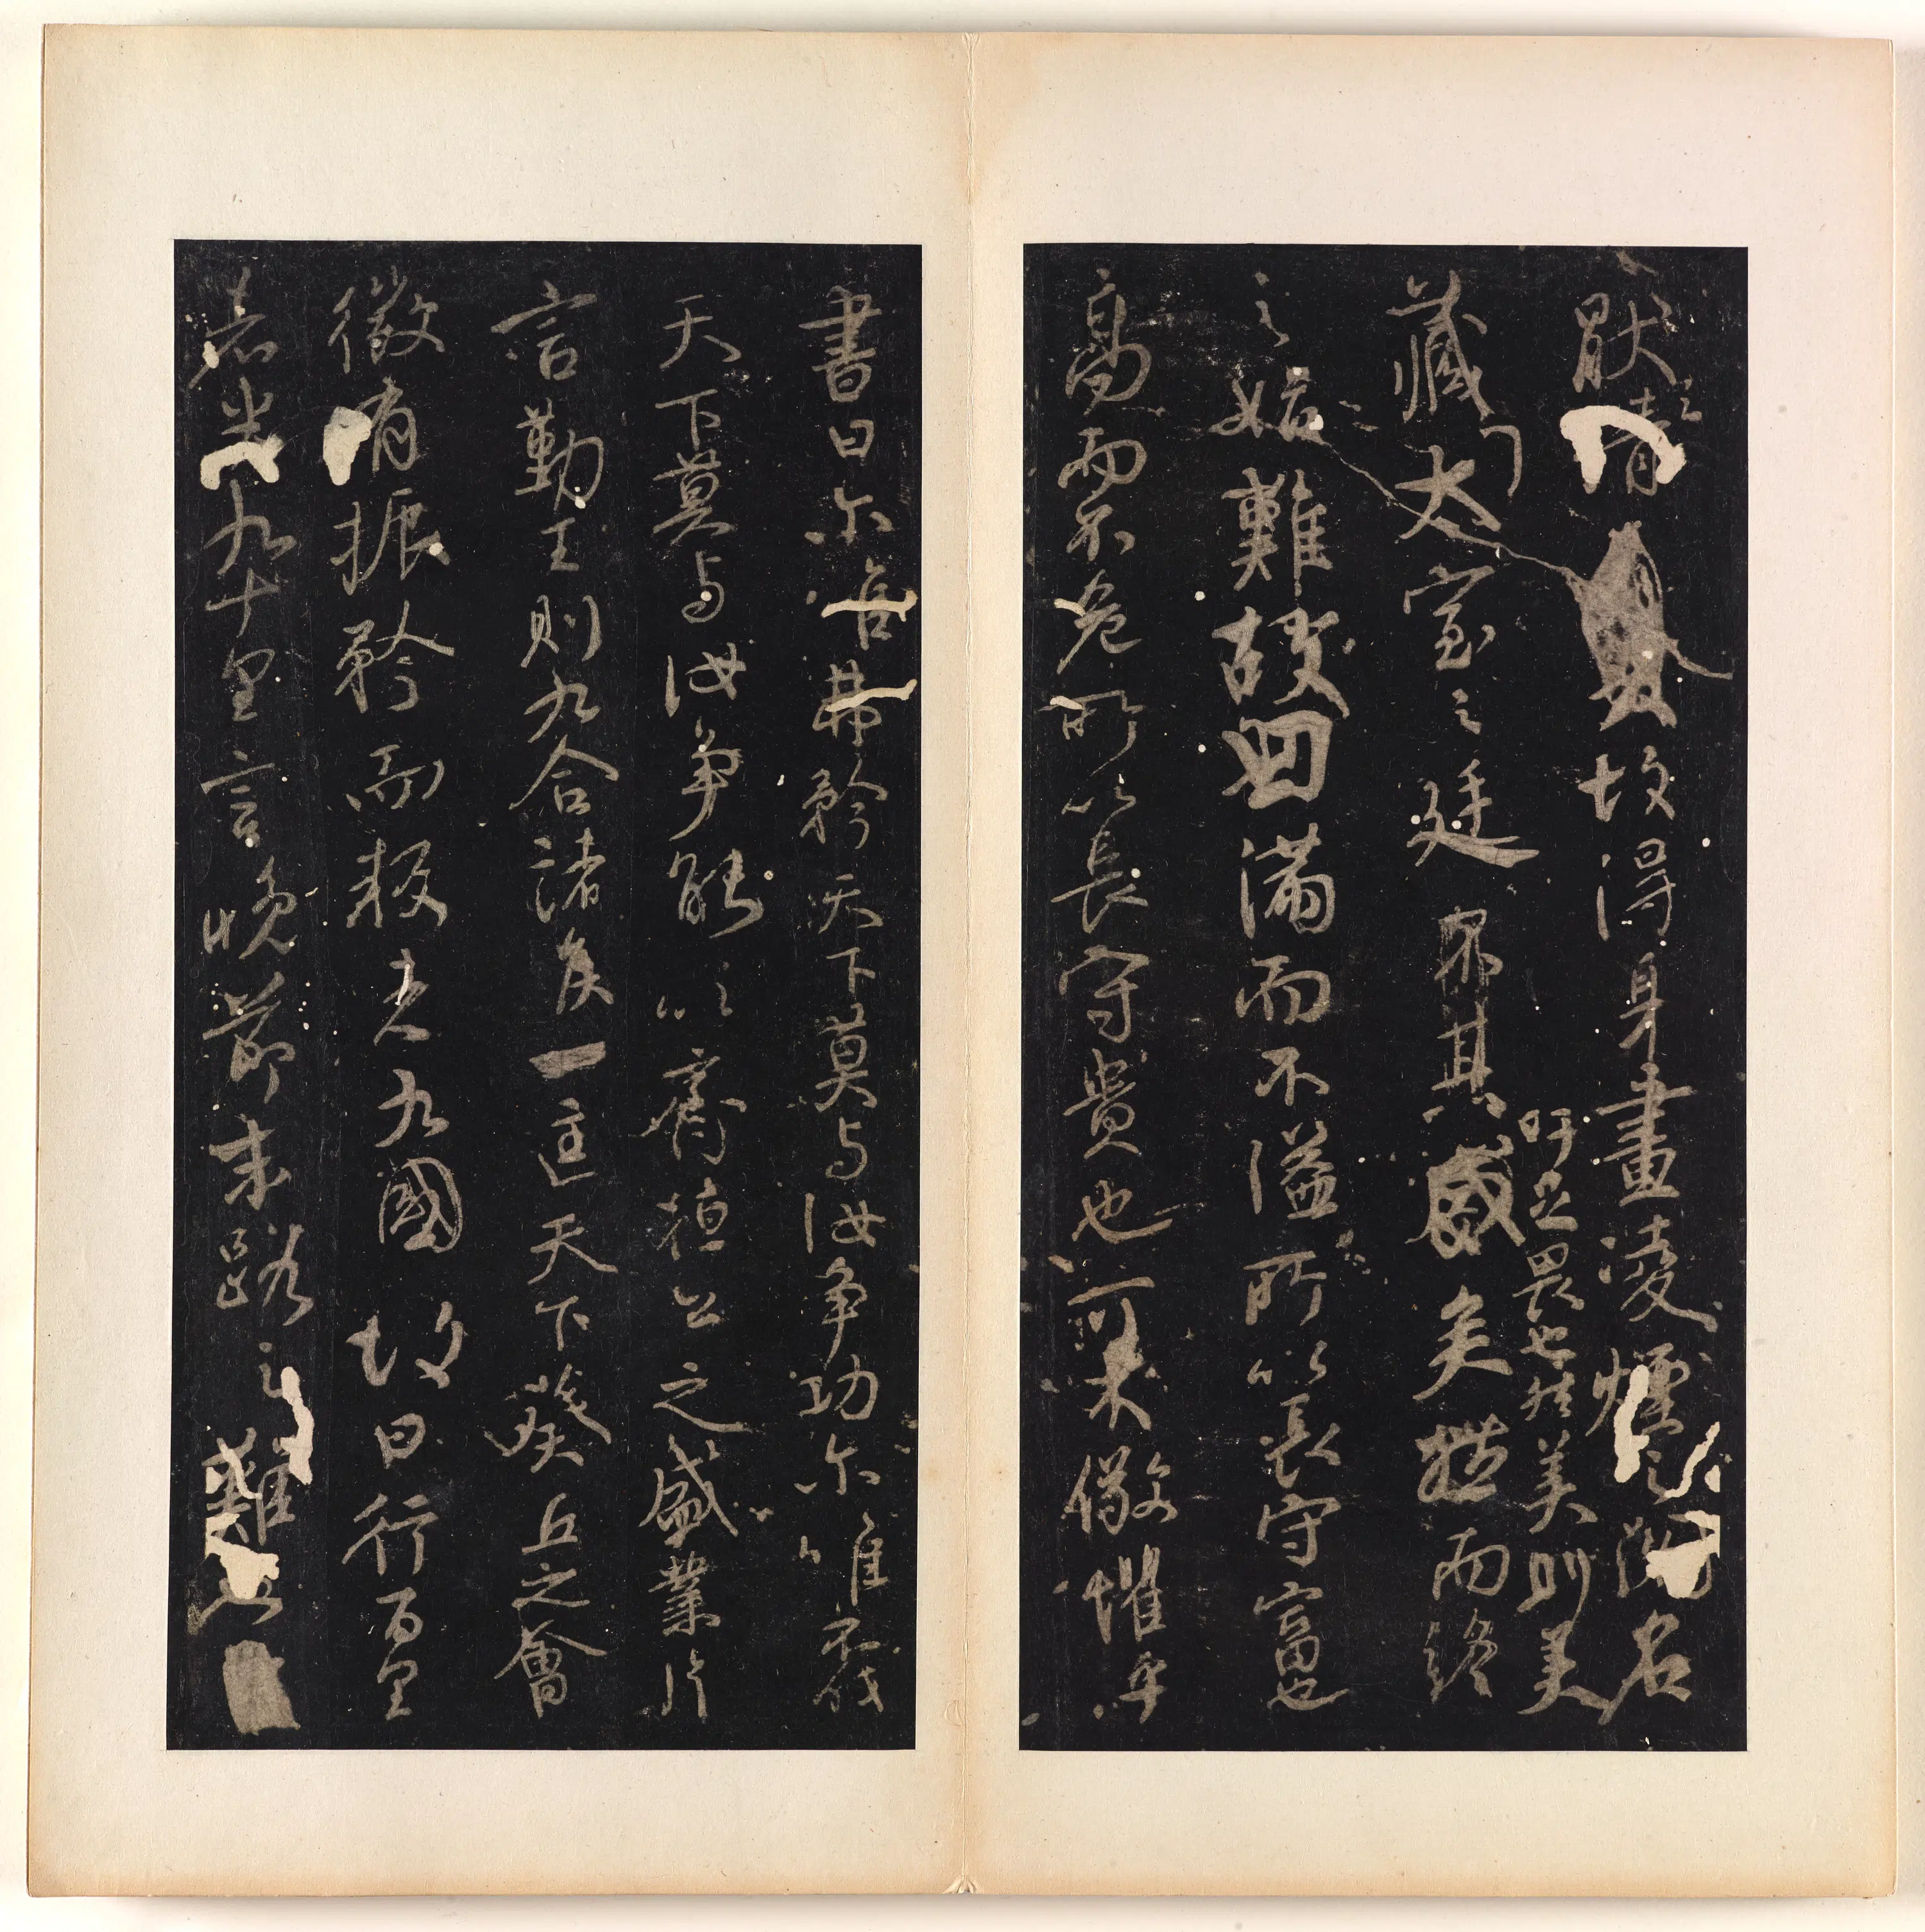 猒之請故得身畫凌煙之閣名
吁足畏也然美則美
藏太室之廷矣而終
之始難故曰滿而不溢所以長守富也
高而不危所以長守貴也可不儆懼乎
書曰尔唯弗矜天下莫与汝争功尔唯不伐
天下莫与汝争能以齊桓公之盛業片
言勤王則九合諸侯一匡天下葵丘之會
微有振矜而叛者九國故曰行百里
者半九十里言晚節末路之難也